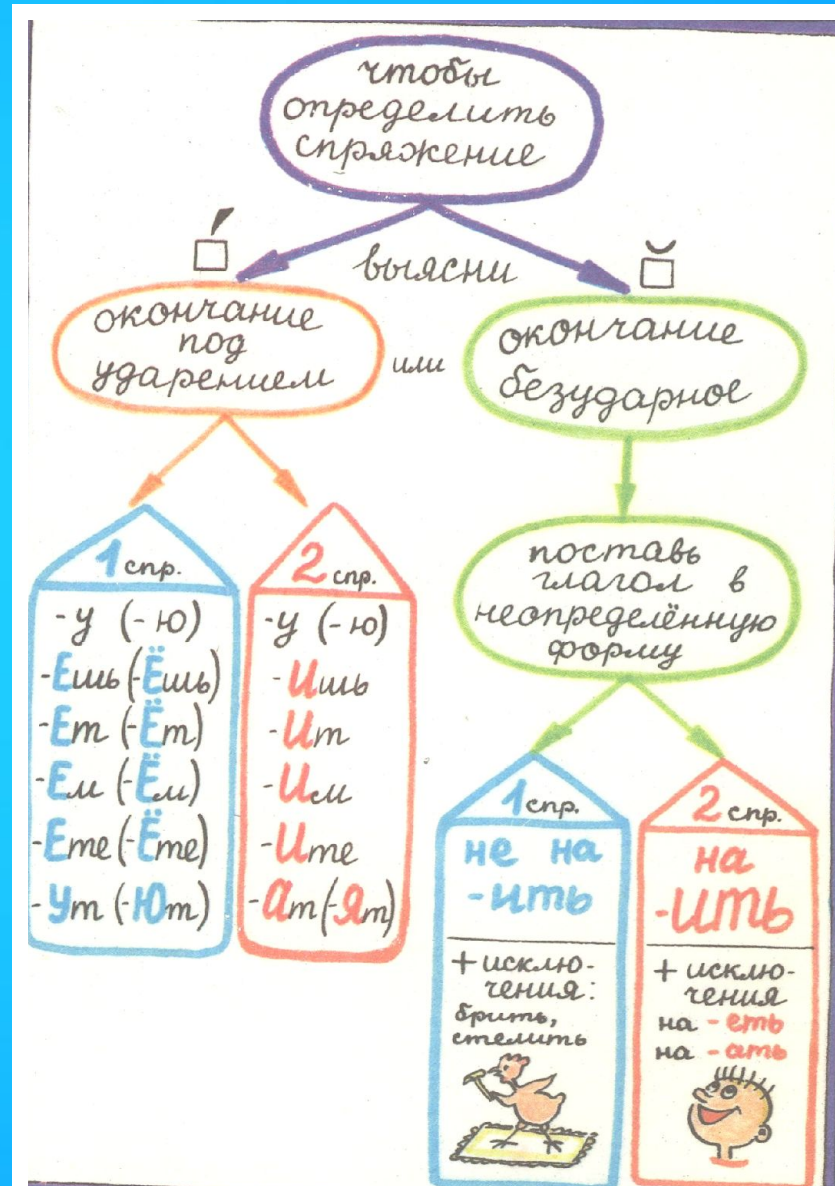 чтобы
определить
спряжение
выясни
окончание
под
ударением
или
окончание
безударное
1 спр.
-у (-ю)
-Ешь (-Ёшь)
-Ет (-Ёт)
-Ем (-Ём)
-Ете (-Ёте)
-Ут (-Ют)
2 спр.
-у (-ю)
-Ишь
-Ит
-Им
-Ите
-Ат (-Ят)
поставь
глагол в
неопределённую
форму
1 спр.
не на
-ить
+ исклю-
чения:
брить,
стелить
2 спр.
на
-ить
+ исклю-
чения
на -еть
на -ать